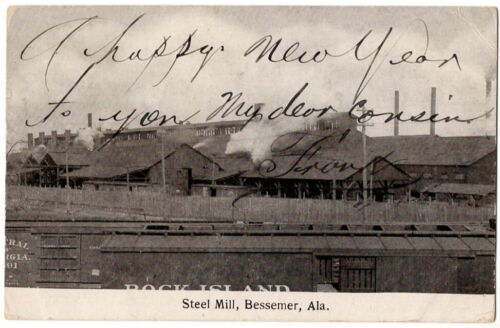 A happy New Year
to you My dear cousin
Frank
TRAL
RGIA.
91
ROCK ISLAND
Steel Mill, Bessemer, Ala.